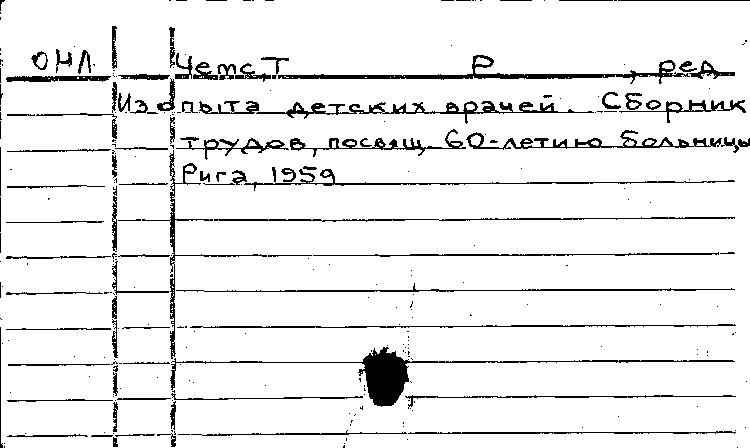 ОНЛ Четс, Т Р , ред
Из опыта детских врачей. Сборник
трудов, посвящ. 60-летию больницы
Рига, 1959